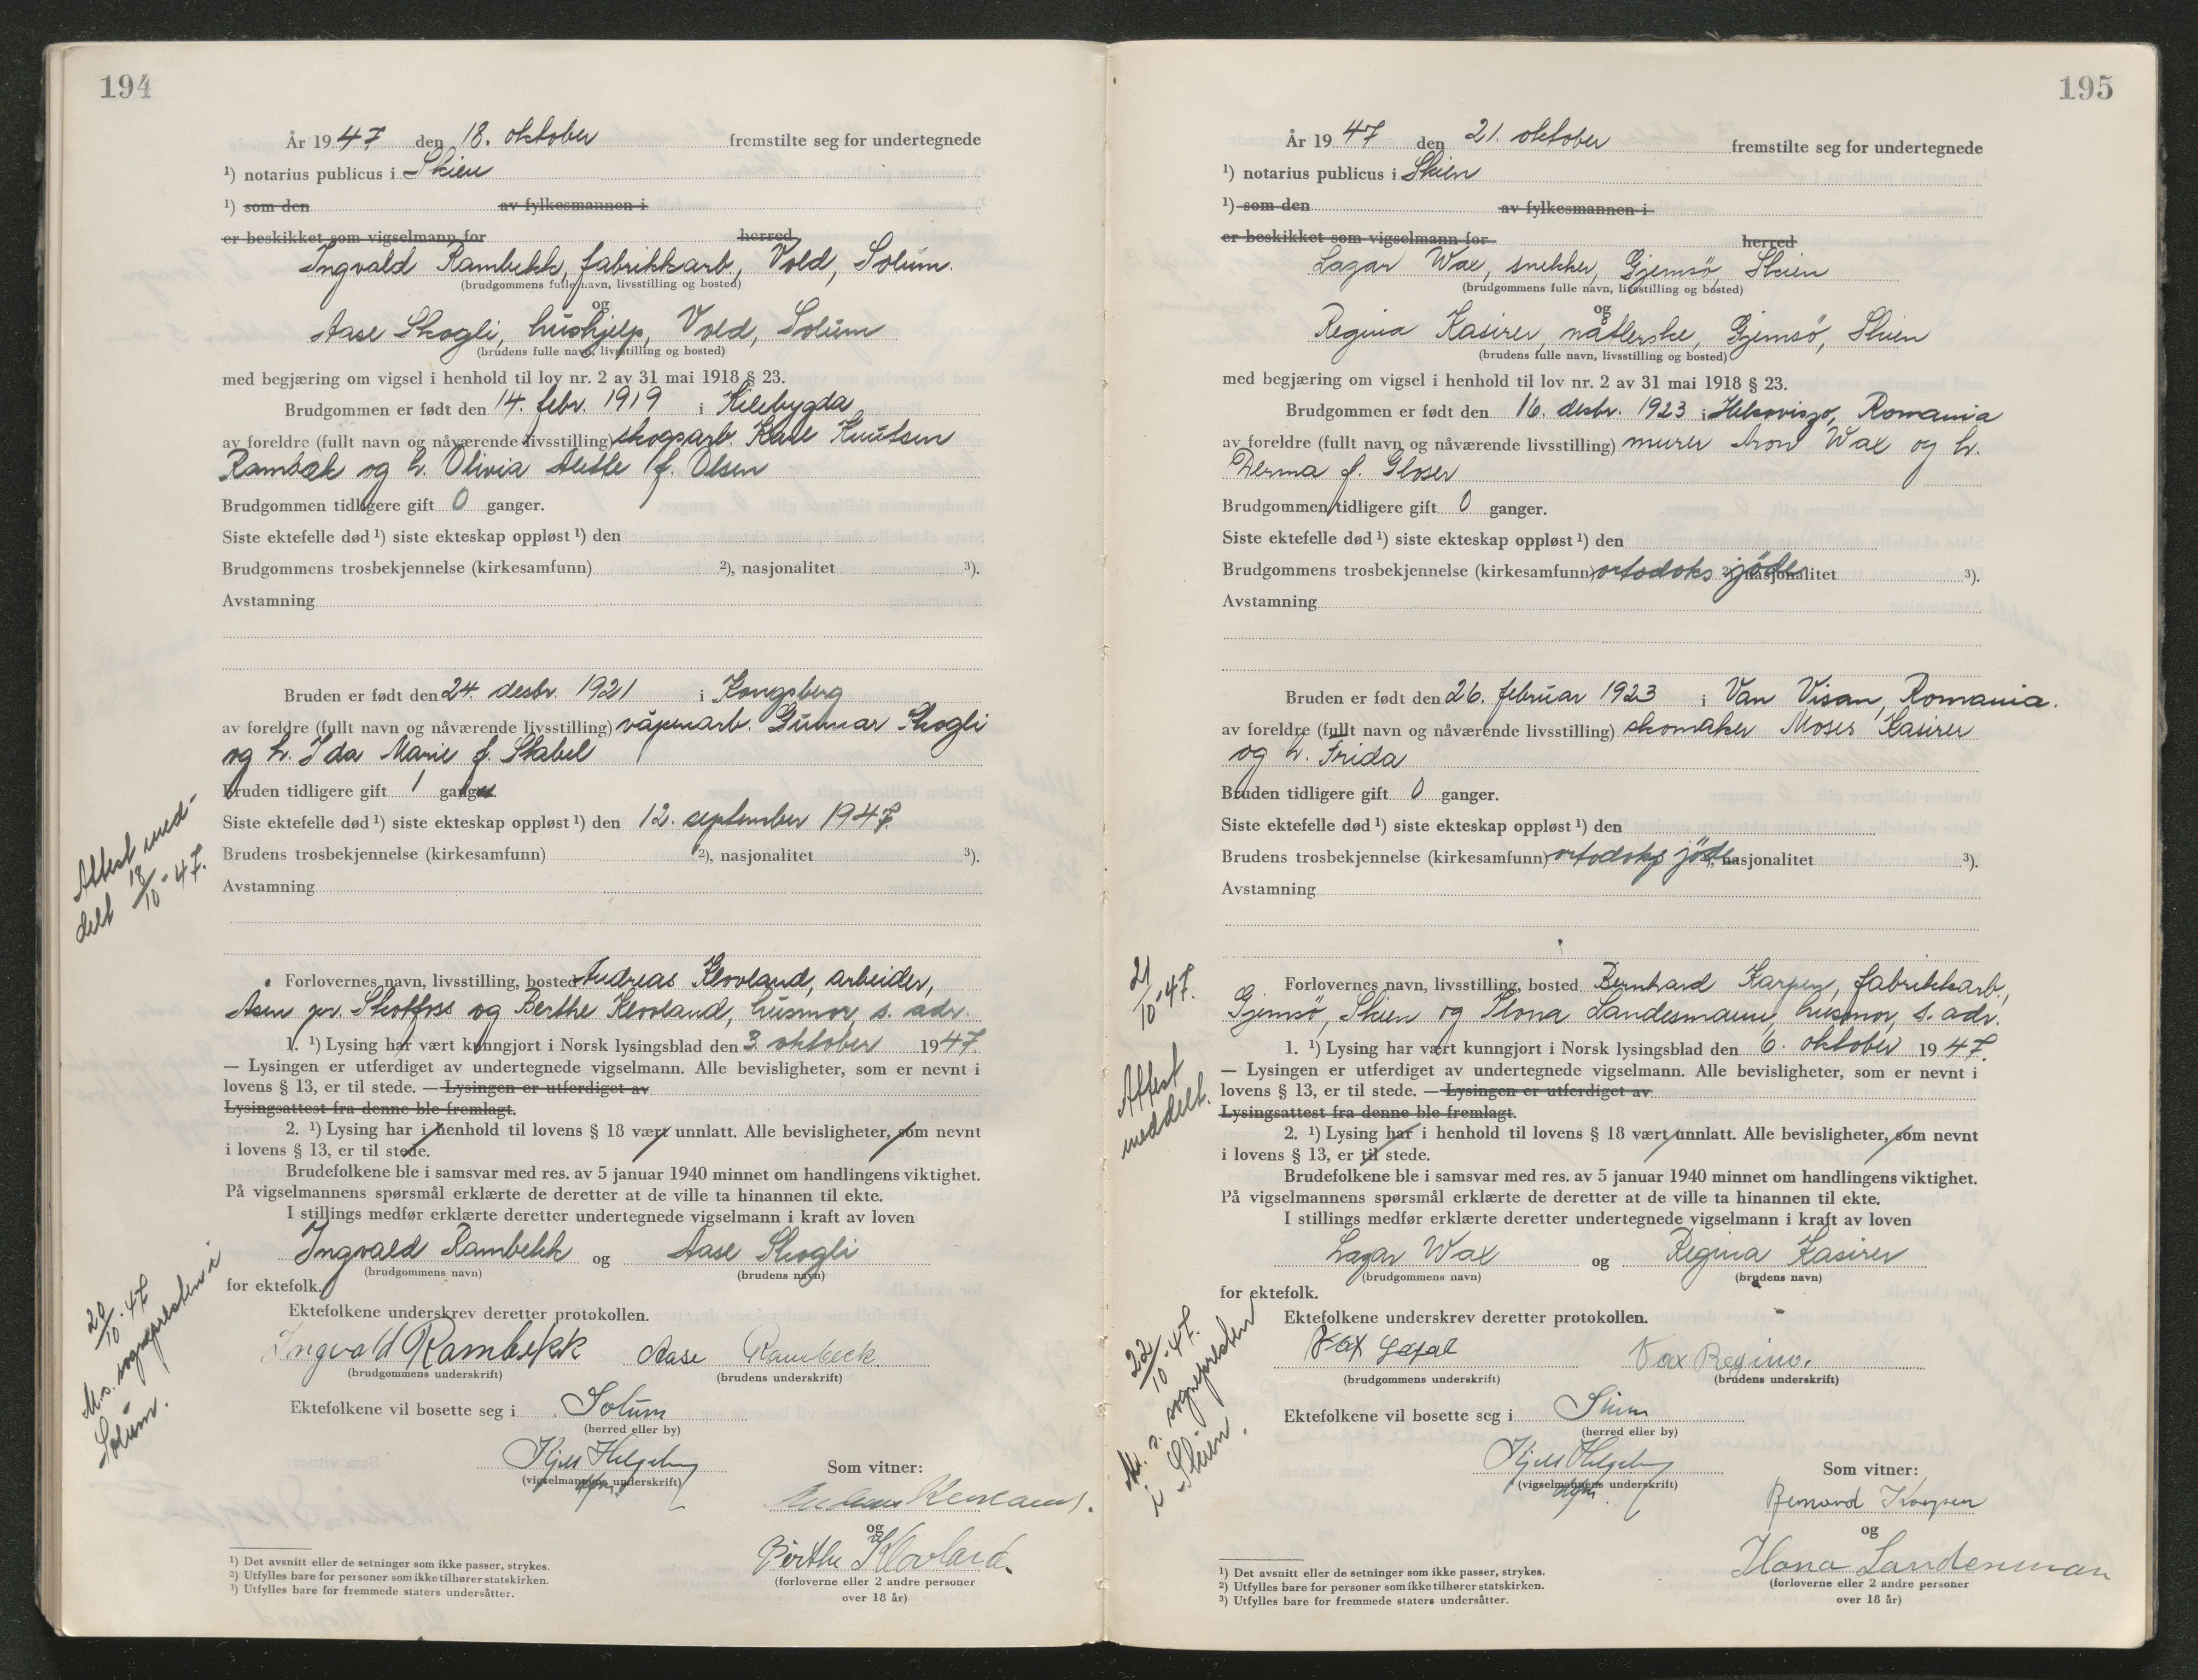 194
År 1947 den 18. oktober fremstilte seg for undertegnede
¹) notarius publicus i Skien
¹) som den av fylkesmannen i
er beskikket som vigselmann for herred
Ingvald Rambekk, fabrikkarb., Vold, Solum.
(brudgommens fulle navn, livsstilling og bosted)
og
Aase Skogli, hushjelp, Vold, Solum
(brudens fulle navn, livsstilling og bosted)
med begjæring om vigsel i henhold til lov nr. 2 av 31 mai 1918 § 23.
Brudgommen er født den 14. febr. 1919 i Kilebygda
av foreldre (fullt navn og nåværende livsstilling) skogsarb. Karl Knutsen
Rambæk og h. Olivia Alette f. Olsen
Brudgommen tidligere gift 0 ganger.
Siste ektefelle død ¹) siste ekteskap oppløst ¹) den
Brudgommens trosbekjennelse (kirkesamfunn) ²), nasjonalitet ³).
Avstamning
Bruden er født den 24. desbr. 1921 i Kongsberg
av foreldre (fullt navn og nåværende livsstilling) våpenarb. Gunnar Skogli
og h. Ida Marie f. Stabel
Bruden tidligere gift 1 ganger.
Siste ektefelle død ¹) siste ekteskap oppløst ¹) den 12. september 1947.
Brudens trosbekjennelse (kirkesamfunn) ²), nasjonalitet ³).
Avstamning
Attest med-
delt 18/10-47.
Forlovernes navn, livsstilling, bosted Andreas Klovland, arbeider,
Åsen pr. Skotfoss og Berthe Klovland, husmor, s. adr.
1. ¹) Lysing har vært kunngjort i Norsk lysingsblad den 3. oktober 1947.
— Lysingen er utferdiget av undertegnede vigselmann. Alle bevisligheter, som er nevnt i
lovens § 13, er til stede. — Lysingen er utferdiget av
Lysingsattest fra denne ble fremlagt.
2. ¹) Lysing har i henhold til lovens § 18 vært unnlatt. Alle bevisligheter, som nevnt
i lovens § 13, er til stede.
Brudefolkene ble i samsvar med res. av 5 januar 1940 minnet om handlingens viktighet.
På vigselmannens spørsmål erklærte de deretter at de ville ta hinannen til ekte.
I stillings medfør erklærte deretter undertegnede vigselmann i kraft av loven
Ingvald Rambekk og Aase Skogli
(brudgommens navn) (brudens navn)
for ektefolk.
20/10-47
M. s. sognepresten i
Solum.
Ektefolkene underskrev deretter protokollen.
Ingvald Rambekk Aase Rambeck
(brudgommens underskrift) (brudens underskrift)
Ektefolkene vil bosette seg i Solum
(herred eller by)
Kjell Helgeby
(vigselmannens underskrift)
Som vitner:
Andreas Klovland.
og
Berthe Klovland.
(forloverne eller 2 andre personer
over 18 år)
¹) Det avsnitt eller de setninger som ikke passer, strykes.
²) Utfylles bare for personer som ikke tilhører statskirken.
³) Utfylles bare for fremmede staters undersåtter.
195
År 1947 den 21. oktober fremstilte seg for undertegnede
¹) notarius publicus i Skien
¹) som den av fylkesmannen i
er beskikket som vigselmann for herred
Lazar Wax, snekker, Gjemsö, Skien
(brudgommens fulle navn, livsstilling og bosted)
og
Regina Kasirer, nåtlerske, Gjemsö, Skien
(brudens fulle navn, livsstilling og bosted)
med begjæring om vigsel i henhold til lov nr. 2 av 31 mai 1918 § 23.
Brudgommen er født den 16. desbr. 1923 i Romania
av foreldre (fullt navn og nåværende livsstilling) murer Aron Wax og h.
f. Gloser
Brudgommen tidligere gift 0 ganger.
Siste ektefelle død ¹) siste ekteskap oppløst ¹) den
Brudgommens trosbekjennelse (kirkesamfunn) ortodoks jöde ²), nasjonalitet ³).
Avstamning
Bruden er født den 26. februar 1923 i Van Visan, Romania.
av foreldre (fullt navn og nåværende livsstilling) skomaker Moses Kasirer
og h. Frida
Bruden tidligere gift 0 ganger.
Siste ektefelle død ¹) siste ekteskap oppløst ¹) den
Brudens trosbekjennelse (kirkesamfunn) ortodoks jöde ²), nasjonalitet ³).
Avstamning
21/10-47.
Attest
meddelt.
Forlovernes navn, livsstilling, bosted Bernhard Karpen, fabrikkarb.,
Gjemsö, Skien og Ilona Landesmann, husmor, s. adr.
1. ¹) Lysing har vært kunngjort i Norsk lysingsblad den 6. oktober 1947.
— Lysingen er utferdiget av undertegnede vigselmann. Alle bevisligheter, som er nevnt i
lovens § 13, er til stede. — Lysingen er utferdiget av
Lysingsattest fra denne ble fremlagt.
2. ¹) Lysing har i henhold til lovens § 18 vært unnlatt. Alle bevisligheter, som nevnt
i lovens § 13, er til stede.
Brudefolkene ble i samsvar med res. av 5 januar 1940 minnet om handlingens viktighet.
På vigselmannens spørsmål erklærte de deretter at de ville ta hinannen til ekte.
I stillings medfør erklærte deretter undertegnede vigselmann i kraft av loven
Lazar Wax og Regina Kasirer
(brudgommens navn) (brudens navn)
for ektefolk.
22/10-47.
M. s. sognepresten
i Skien.
Ektefolkene underskrev deretter protokollen.
Vax Vax Regina.
(brudgommens underskrift) (brudens underskrift)
Ektefolkene vil bosette seg i Skien
(herred eller by)
Kjell Helgeby
(vigselmannens underskrift)
Som vitner:
Bernard Karpen
og
Ilona Landesman
(forloverne eller 2 andre personer
over 18 år)
¹) Det avsnitt eller de setninger som ikke passer, strykes.
²) Utfylles bare for personer som ikke tilhører statskirken.
³) Utfylles bare for fremmede staters undersåtter.